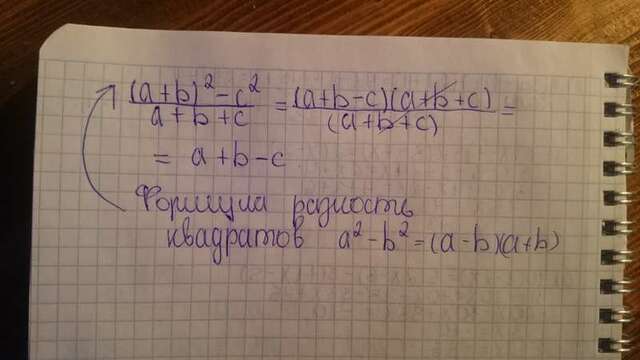 (a+b)² - c² / a+b+c = (a+b-c)(a+b+c) / (a+b+c) =
= a+b-c
Формула разность
квадратов a² - b² = (a-b)(a+b)